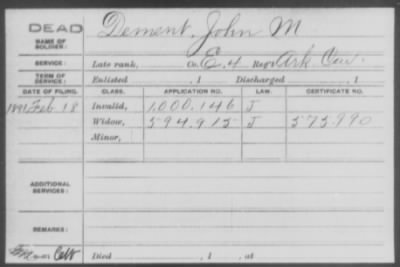 DEAD
NAME OF SOLDIER: Dement, John M
SERVICE: Late rank, Co. E, 4 Reg't Ark Cav.
TERM OF SERVICE: Enlisted , 1 Discharged , 1
DATE OF FILING. CLASS. APPLICATION NO. LAW. CERTIFICATE NO.
1891 Feb 18 Invalid, 1,000,146 J
Widow, 594,915 J 573,990
Minor,
ADDITIONAL SERVICES:
REMARKS:
Died , 1 , at